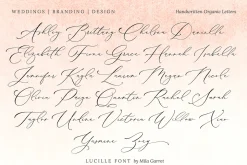 WEDDINGS | BRANDING | DESIGN Handwritten Organic Letters
Ashley Brittany Chelsea Danielle
Elizabeth Fiona Grace Hannah Isabelle
Jennifer Kayla Lauren Megan Nicole
Olivia Paige Quentin Rachel Sarah
Taylor Undine Victoria Willow Xiao
Yasmine Zoey
LUCILLE FONT by Mila Garret